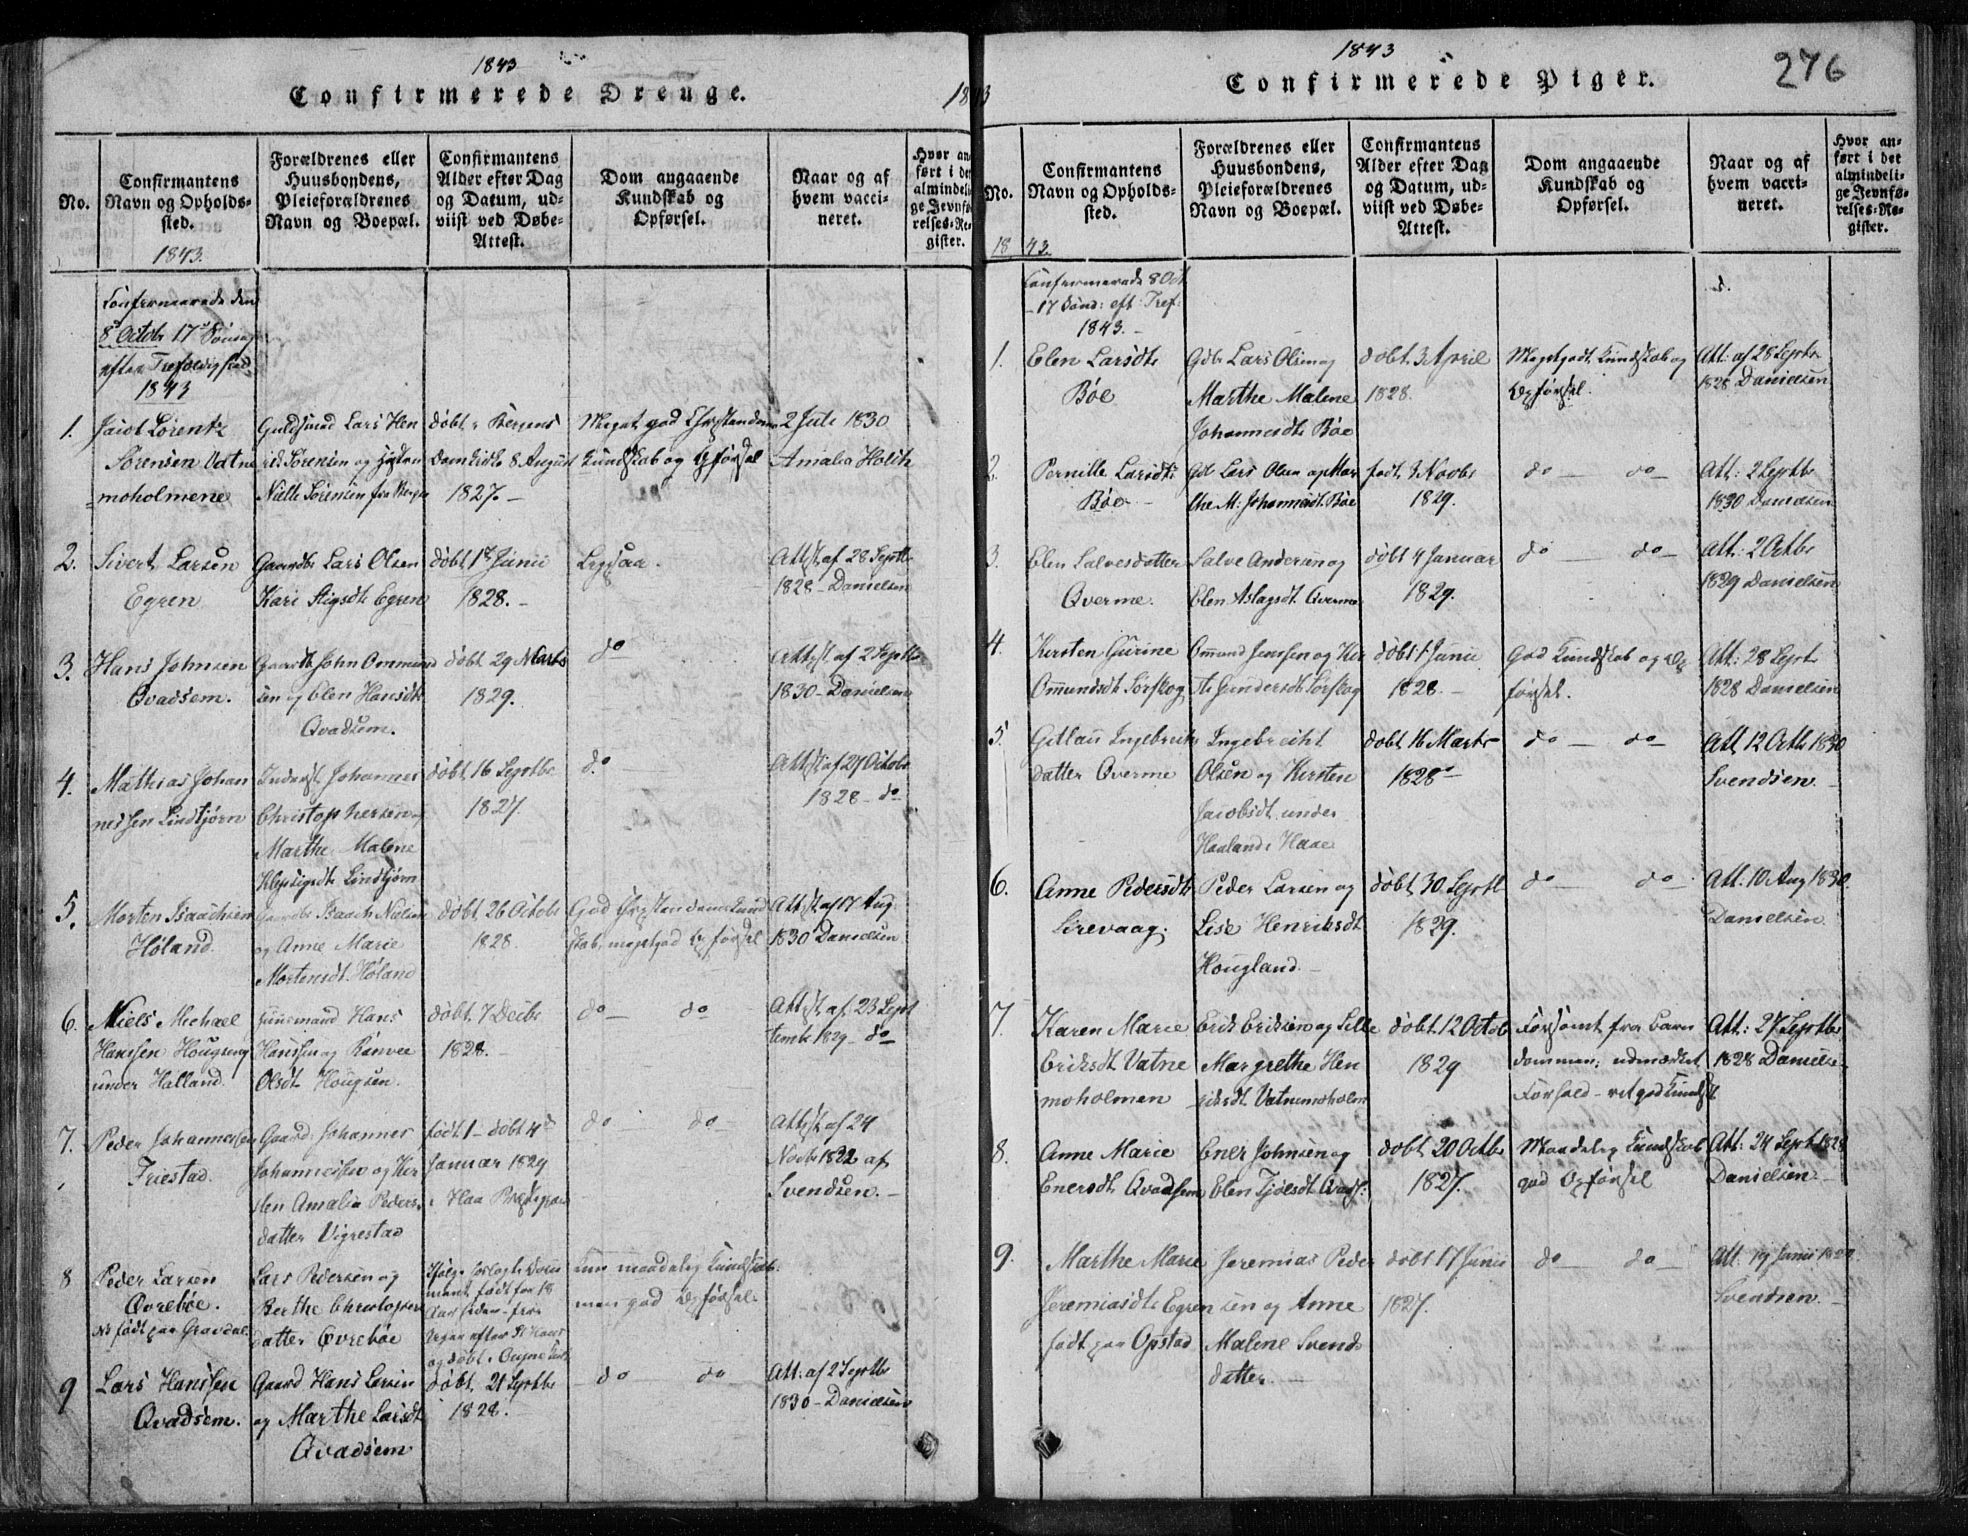 1843
Confirmerede Drenge.
1843
No.
Confirmantens
Navn og Opholds-
sted.
1843.
Forældrenes eller
Huusbondens,
Pleieforældrenes
Navn og Boepæl.
Confirmantens
Alder efter Dag
og Datum, ud-
viist ved Døbe-
Attest.
Dom angaaende
Kundskab og
Opførsel.
Naar og af
hvem vacci-
neret.
Hvor an-
ført i det
almindeli-
ge Jevnfø-
relses-Re-
gister.
Confirmerede den
8 Octob 17 Søndag
efter Trefoldighed
1843
1.
Jacob Lorentz
Sørensen Vatne
moholmene
Guldsmed Lars Hen
rik Sørensen og
Sørensen fra Bergen
døbt i Bergens
Domkirke 8 August
1827.
Meget god Christendoms
Kundskab og Opførsel
2 Juli 1830
Amalia Holch
2.
Sivert Larsen
Egren
Gaardb Lars Olsen
Kari Stigsdt Egren
døbt 1 Junii
1828.
Ligesaa.
Attest af 28 Septbr
1828 - Danielsen
3.
Hans Johnsen
Qvadsem.
Gaardb John Ommund
sen og Elen Hansdt
Qvadsem.
døbt 29 Marts
1829.
do
Attest af 2 Septbr
1830 - Danielsen
4.
Mathias Johan
nessen Lindtjørn
Inderst Johannes
Christophersen og
Marthe Malene
Lindtjørn
døbt 16 Septbr
1827.
do
Attest af 27 Octobr
1828 - do
5.
Morten Isaachsen
Høland.
Gaardb Isaach Nielsen
og Anne Marie
Mortensdt Høland
døbt 26 Octobr
1828.
God Christendoms Kund
skab, meget god Opførsel
Attest af 17 Aug.
1830 Danielsen
6.
Niels Michael
Hanssen Hougsen
under Halland.
Huusmand Hans
Hanssen og Ranvei
Olsdt Hougsen.
døbt 7 Decbr
1828.
do — do
Attest af 23 Sept
tembr 1829 - do
7.
Peder Johannessen
Friestad.
Gaardb Johannes
Johannessen og Kir
sten Amalia Peders
datter Vigrestad
født 1 - døbt 4de
Januar 1829
i Haa Præstegjeld
do — do
Attest af 24
Novbr 1822 af
Svendsen.
8
Peder Larsen
Qvrebøe.
NB født paa Gravdal.
Lars Pedersen og
Berthe Christophers
datter Øvrebøe
Ifølge forlagte Docu
ment født for 18
Aar siden
og døbt i Ougne
kun maadelig Kundskab
men god Opførsel.
9
Lars Hanssen
Qvadsem.
Gaard Hans Larsen
og Marthe Larsdt
Qvadsem
døbt 21 Septbr
1828.
do — do
Att: af 2 Septbr
1830 - Danielsen
1843
Confirmerede Piger.
276
No.
1843.
Confirmantens
Navn og Opholds-
sted.
Forældrenes eller
Huusbondens,
Pleieforældrenes
Navn og Boepæl.
Confirmantens
Alder efter Dag
og Datum, ud-
viist ved Døbe-
Attest.
Dom angaaende
Kundskab og
Opførsel.
Naar og af
hvem vacci-
neret.
Hvor an-
ført i det
almindeli-
ge Jevnfø-
relses-Re-
gister.
Confirmerede 8 Oct
17 Sønd: eft: Tref:
1843.
1.
Elen Larsdt
Bøe
Gdb Lars Olsen og
Marthe Malene
Johannesdt Bøe
døbt 3 April
1828.
Megetgodt Kundskab og
Opførsel.
Att: af 28 Septbr
1828 Danielsen
2.
Pernille Larsdt
Bøe
Gdb Lars Olsen og Mar
the M: Johannesdt Bøe
født 3 Novbr
1829.
do — do
Att: 2 Septbr
1830 Danielsen
3.
Elen Salvesdatter
Qverme.
Salve Andersen og
Elen Aslagsdt Qverme
døbt 4 Januar
1829.
do — do
Att: 2 Octbr
1829 Danielsen
4.
Kirsten Gurine
Ommundsdt Torskog
Ommund Jenssen og Kir
Gundersdt Torskog
døbt 1 Junii
1828.
God Kundskab og Op
førsel.
Att: 28 Sept
1828 Danielsen
5.
Gitlau Ingebrects
datter Qverme
Ingebrecht
Olsen og Kirsten
Jacobsdt under
Haaland i Haae
døbt 16 Marts
1828
do — do
Att 12 Octb 1830
Svendsen.
6.
Anne Pedersdt
Sirevaag.
Peder Larsen og
Lise Henriksdt
Hougland.
døbt 30 Septb
1829.
do — do
Att. 10 Aug 1830.
Danielsen
7.
Karen Marie
Eriksdt Vatne
moholmen
Erik Eriksen og Sille
Margrethe Hen
riksdt Vatnemoholm
døbt 12 Octob
1829
Forsømt fra Barn
dommen, udmærket
Forhold - ret god Kundsk
Att: 27 Septbr
1828 Danielsen
8.
Anne Marie
Enersdt Qvadsem
Ener Johnsen og
Elen Tjølsdt Qvads:
døbt 20 Octbr
1827.
Maadelig Kundskab
god Opførsel
Att: 24 Sept 1828
Danielsen
9.
Marthe Marie
Jeremiasdt Egren
født paa Opstad
Jeremias Peder
sen og Anne
Malene Svends
datter.
døbt 17 Junii
1827.
do — do
Att. 19 Junii
Svendsen